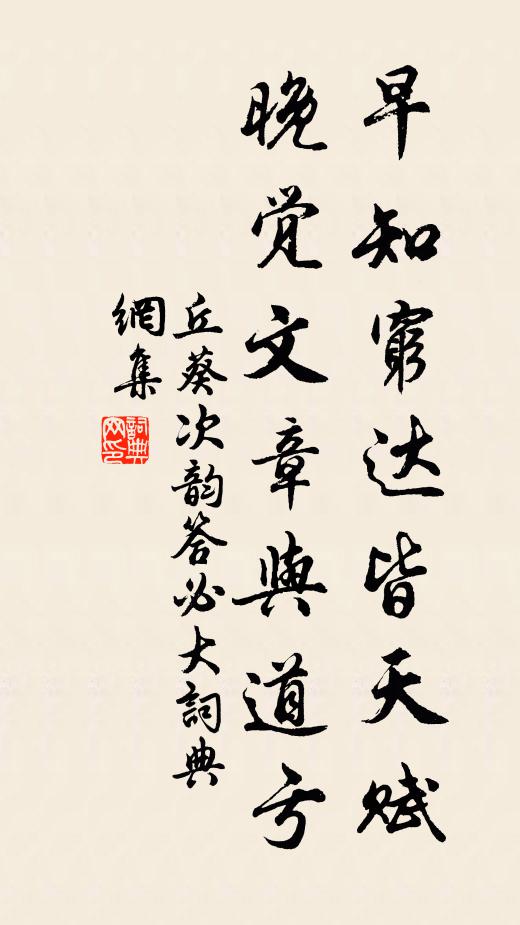 早知窮达皆天赋
晚觉文章與道亏
丘葵次韵答必大詞典
網集
詞典
网印